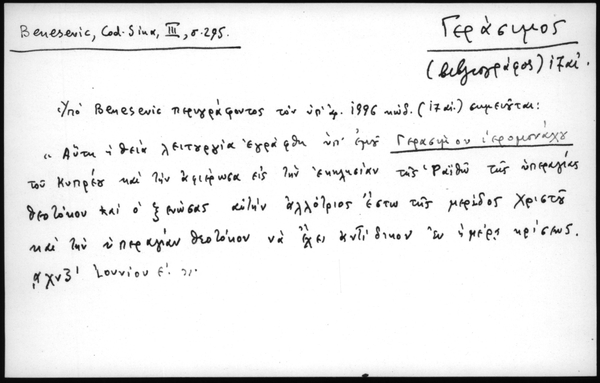 Benesevic, Cod. Sina, III, σ. 295.
Γεράσιμος
(βιβλιογράφος) ιζ αἰ.
Ὑπό Benesevic περιγράφοντος τόν ὑπ' ἀρ. 1996 κώδ. (ιζ αἰ.) σημειοῦται:
"Αὕτη ἡ θεία λειτουργία ἐγράφθη ὑπ' ἐμοῦ Γερασίμου ἱερομονάχου
τοῦ Κυπρέου καί τήν ἀφιέρωσα εἰς τήν ἐκκλησίαν τῆς Ῥαϊθῶ τῆς ὑπεραγίας
θεοτόκου καί ὁ ξενώσας αὐτήν ἀλλότριος ἔστω τῆς μερίδος Χριστοῦ
καί τήν ὑπεραγίαν θεοτόκον νά ἔχει ἀντίδικον ἐν ἡμέρᾳ κρίσεως.
͵αχνζ' Ἰουνίου ε'. ".